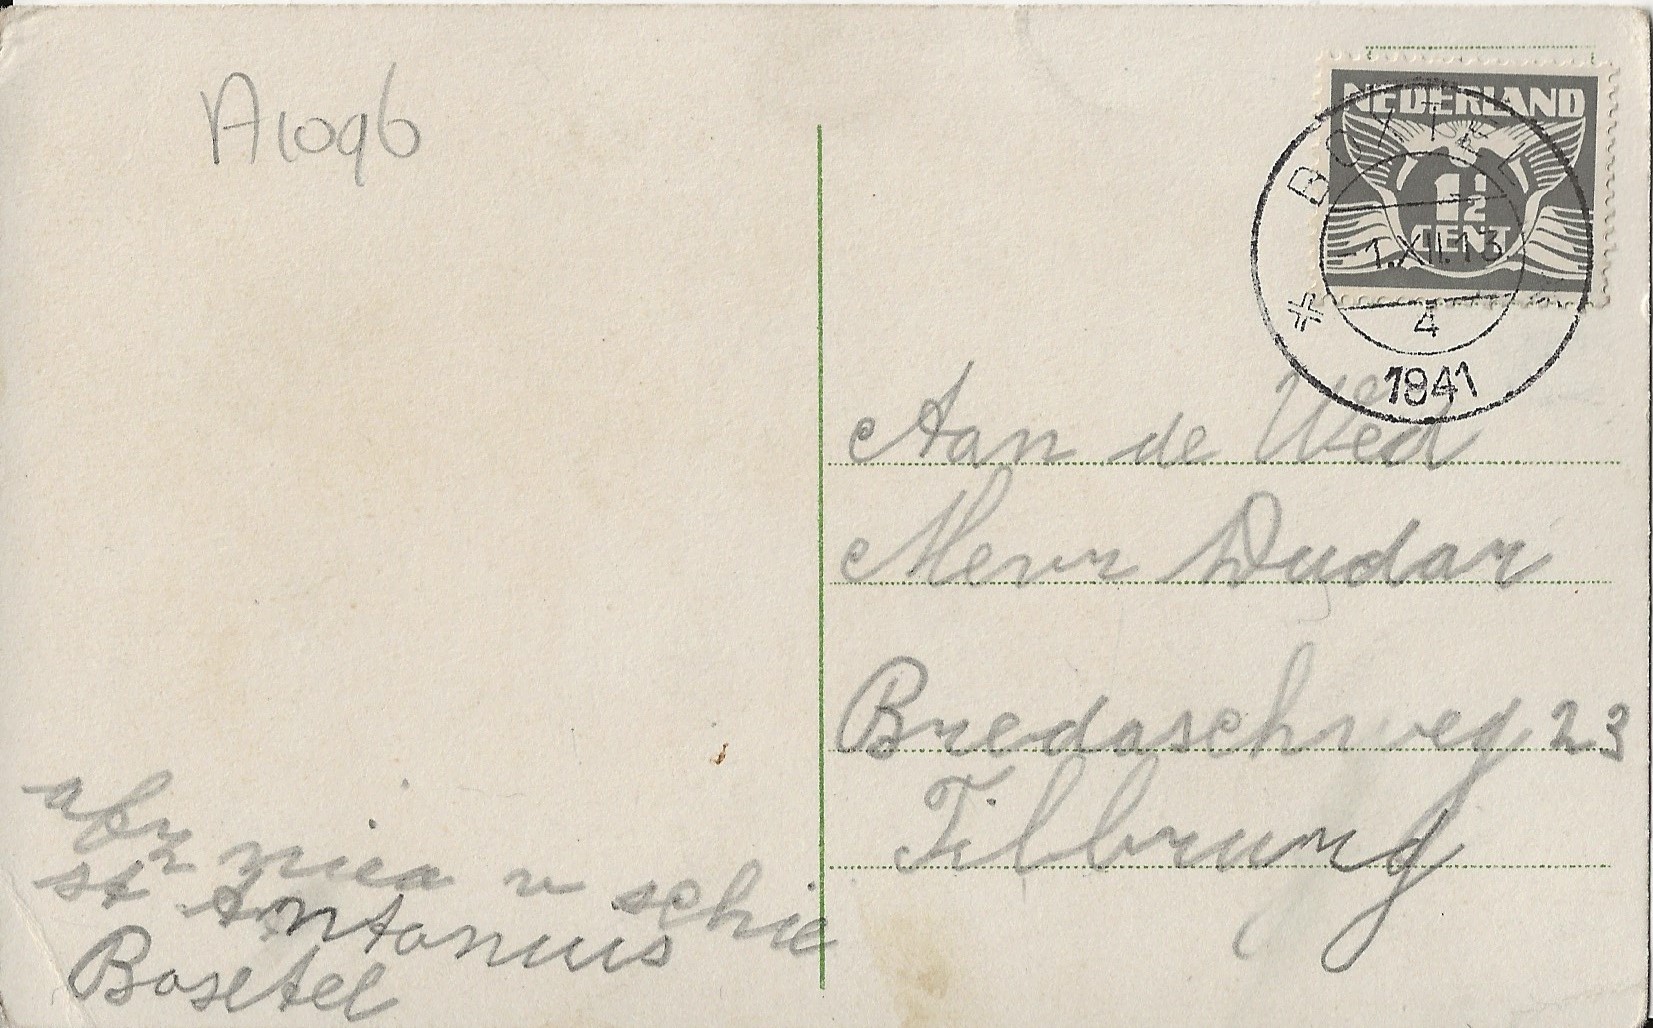 A1096
NEDERLAND
1 1/2
CENT
BOXTEL
-1.XII.13
4
1941
Aan de Wed
Mevr Dudar
Bredaschweg 23
Tilbrung
afz
v schie
st Antonius
Bosetel